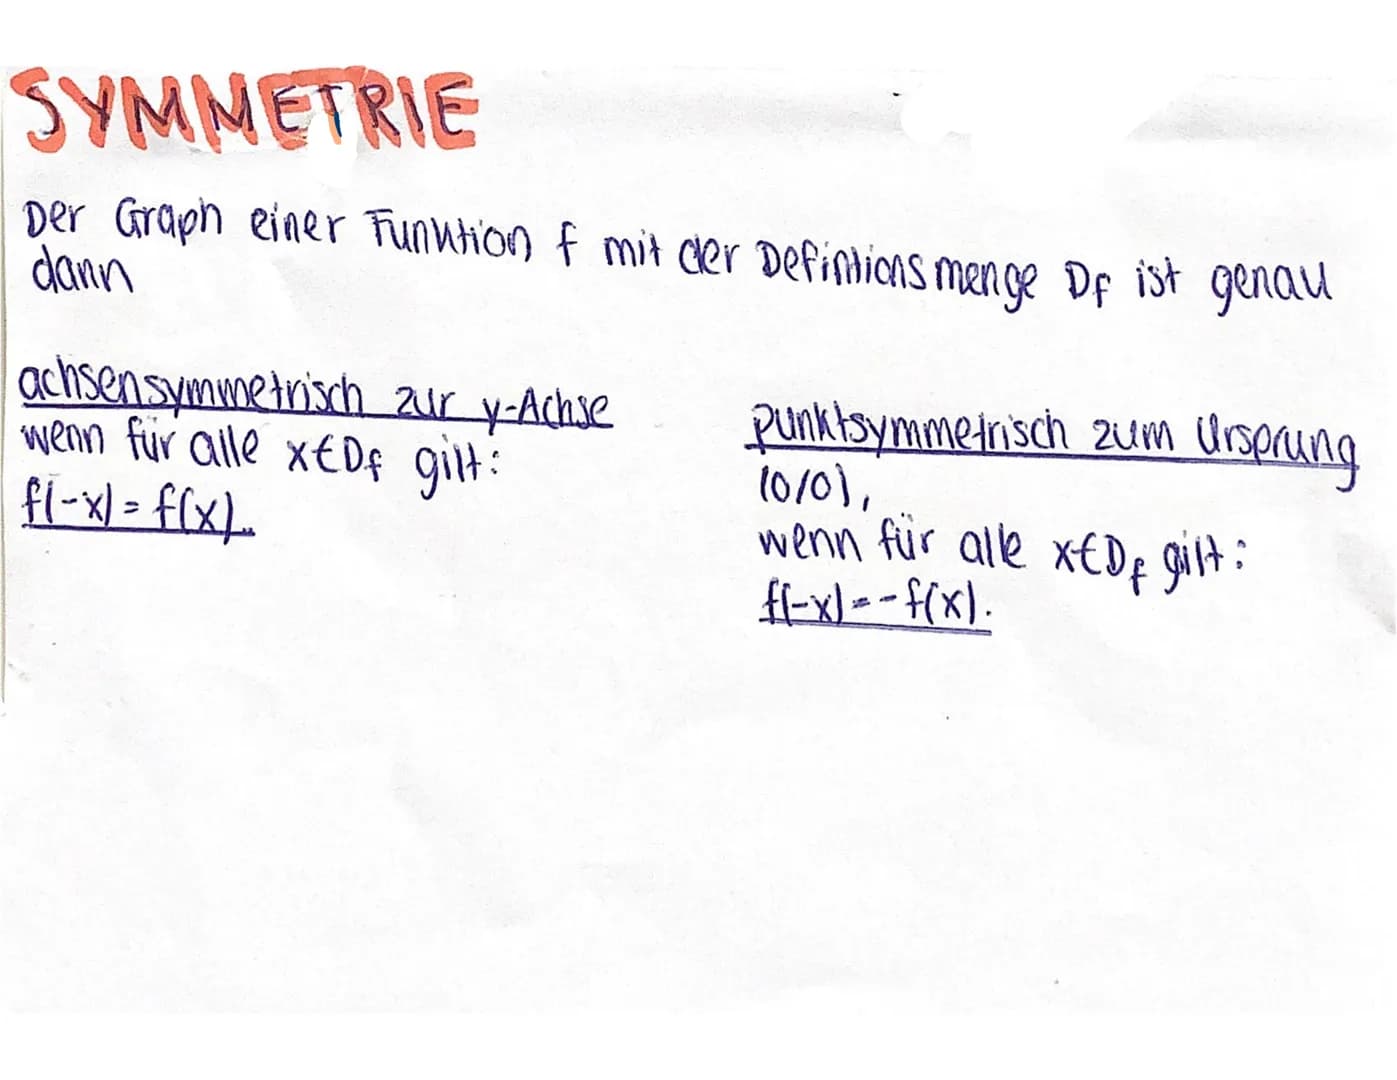 SYMMETRIE
Der Graph einer Funktion f mit der Defintionsmenge Df ist genau
dann
achsensymmetrisch zur y-Achse
wenn für alle x∈Df gilt:
f(-x) = f(x).
punktsymmetrisch zum Ursprung
(0/0),
wenn für alle x∈Df gilt:
f(-x) = -f(x).